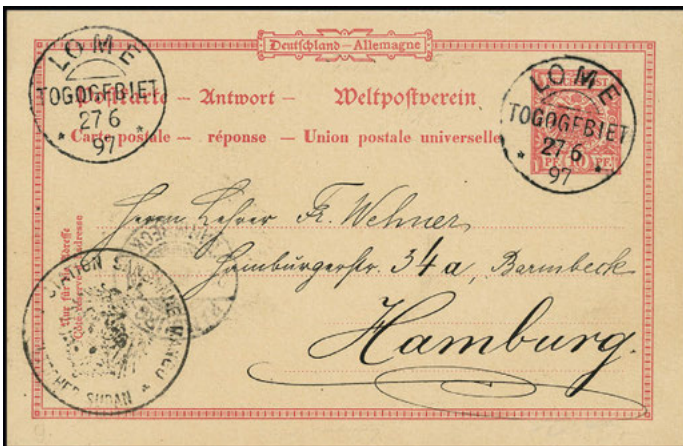 Deutschland – Allemagne
Postkarte – Antwort – Weltpostverein
Carte postale – réponse – Union postale universelle
LOME
TOGOGEBIET
27 6
97
LOME
TOGOGEBIET
27 6
97
10 PF
Herrn Lehrer Fr. Wehner
Hamburgerstr. 34a, Barmbeck
Hamburg.
Nur für die Adresse
Côté réservé à l'adresse
STATION SANSANNE MANGU
SUDAN